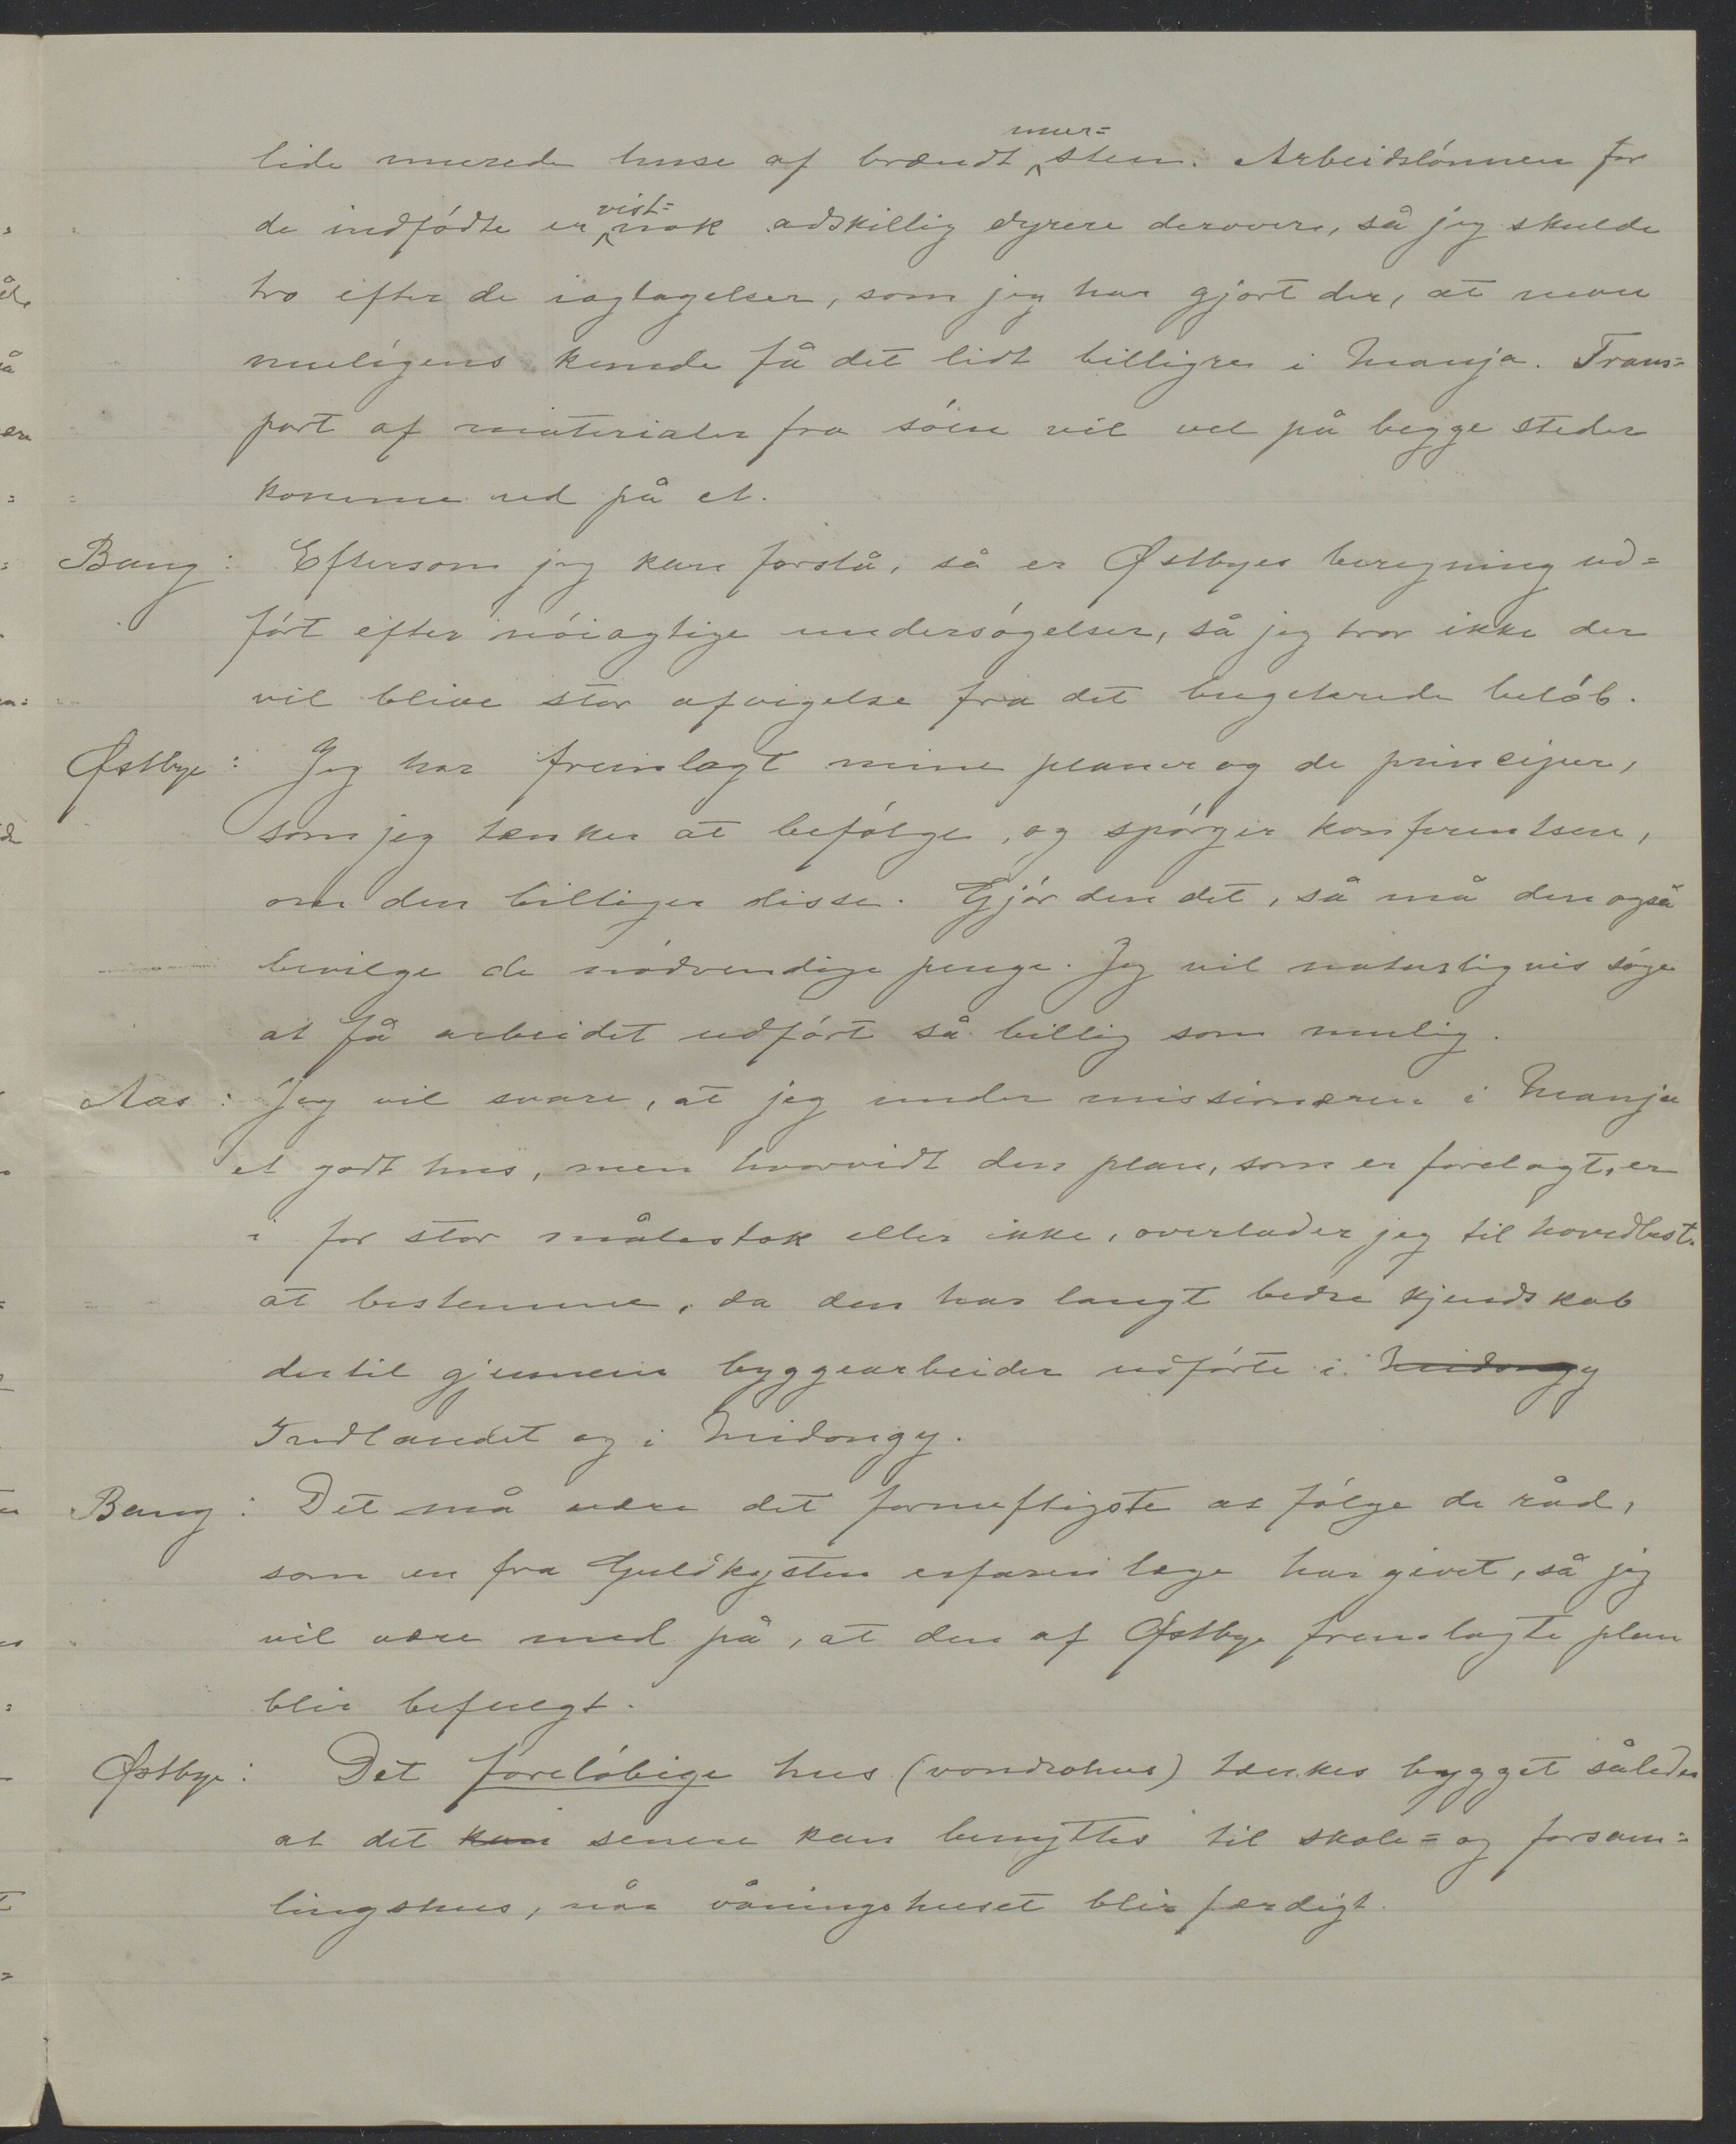 lide murede huse af brændt mur=sten. Arbeidslónnen for
de indfódte er vist=nok adskillig dyrere derovere, så jeg skulde
tro efter de iagtagelser, som jeg har gjort der, at man
muligens kunde få det lidt billigre i Manja. Trans=
port af materialer fra sóen vil vel på begge steder
komme ud på et.
Bang: Eftersom jeg kan forstå, så er Østbyes beregning ud=
fórt efter nóiagtige undersógelser, så jeg tror ikke der
vil blive stor afvigelse fra det bugeterede belób.
Østbye: Jeg har fremlagt mine planer og de principer,
som jeg tænker at befólge, og spórger konferentsen,
om den billiger disse. Gjór den det, så må den også
bevilge de nódvendige penge. Jeg vil naturligvis sóge
at få arbeidet udfórt så billig som mulig.
Aas: Jeg vil svare, at jeg under missionæren i Manja
et godt hus, men hvorvidt den plan, som er forelagt, er
i for stor målestok eller ikke, overlader jeg til hovedbest.
at bestemme, da den har langt bedre kjendskab
dertil gjennem byggearbeider udfórte i Midongy
Indlandet og i Midongy.
Bang: Det må være det fornuftigste at fólge de råd,
som en fra Guldkysten erfaren læge har givet, så jeg
vil være med på, at den af Østbye fremlagte plan
blir befulgt.
Østbye: Det forelóbige hus (vondrohus) tænkes bygget således
at det kan senere kan benyttes til skole= og forsam=
lingshus, når våningshuset blir færdigt.